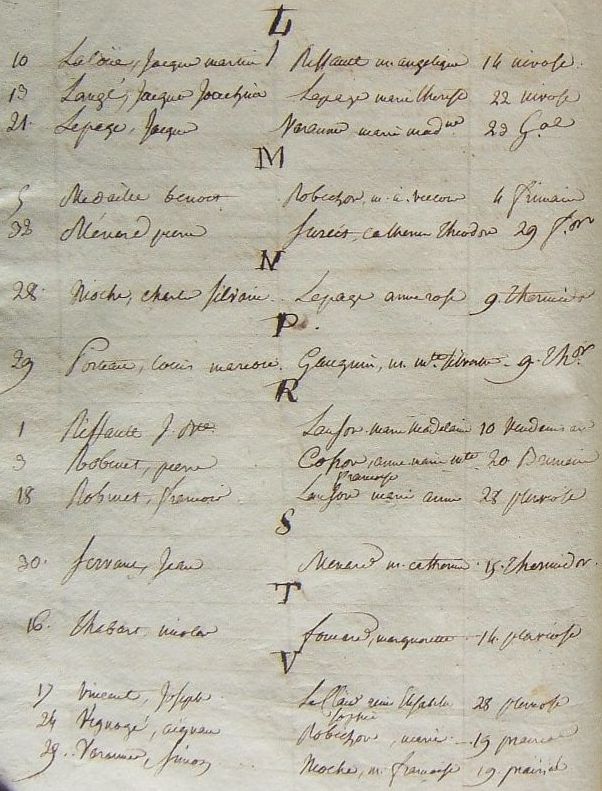 L
10 Laloüe, Jacque martin Riffault m angelique 14 nivose.
13 Langé, Jacque Joachim Lepage marie therese 22 nivose
21. Lepage, Jacque Varanne marie mad.ne 23 G.al
M
5 Medaille benoit Robichon, m. a. 4 frimaire
38 Ménard pierre catherine theodore 29 f.or
N
28. Moche, charle silvain Lepage anne rose 9 thermidor
P.
29 Poreau, louis Gauguin, m. 9. Th.or
R
1 Riffault J. Bte Lanson marie madelaine 10 vendemiaire
3 Robinet, pierre anne marie 20 Brumaire
francoise
18 Robinet, francois Lanson marie anne 28 pluviose
S
30. Servant, Jean Menard m. catherine 15. thermidor.
T
16. thabart, nicolas marguerite 14. pluviose
V
17 vincent, Joseph elisabeth 28 pluviose
sophie
24 aignan Robichon, marie 19 prairial
29. Varanne, simon Moche, m. francoise 19. prairial